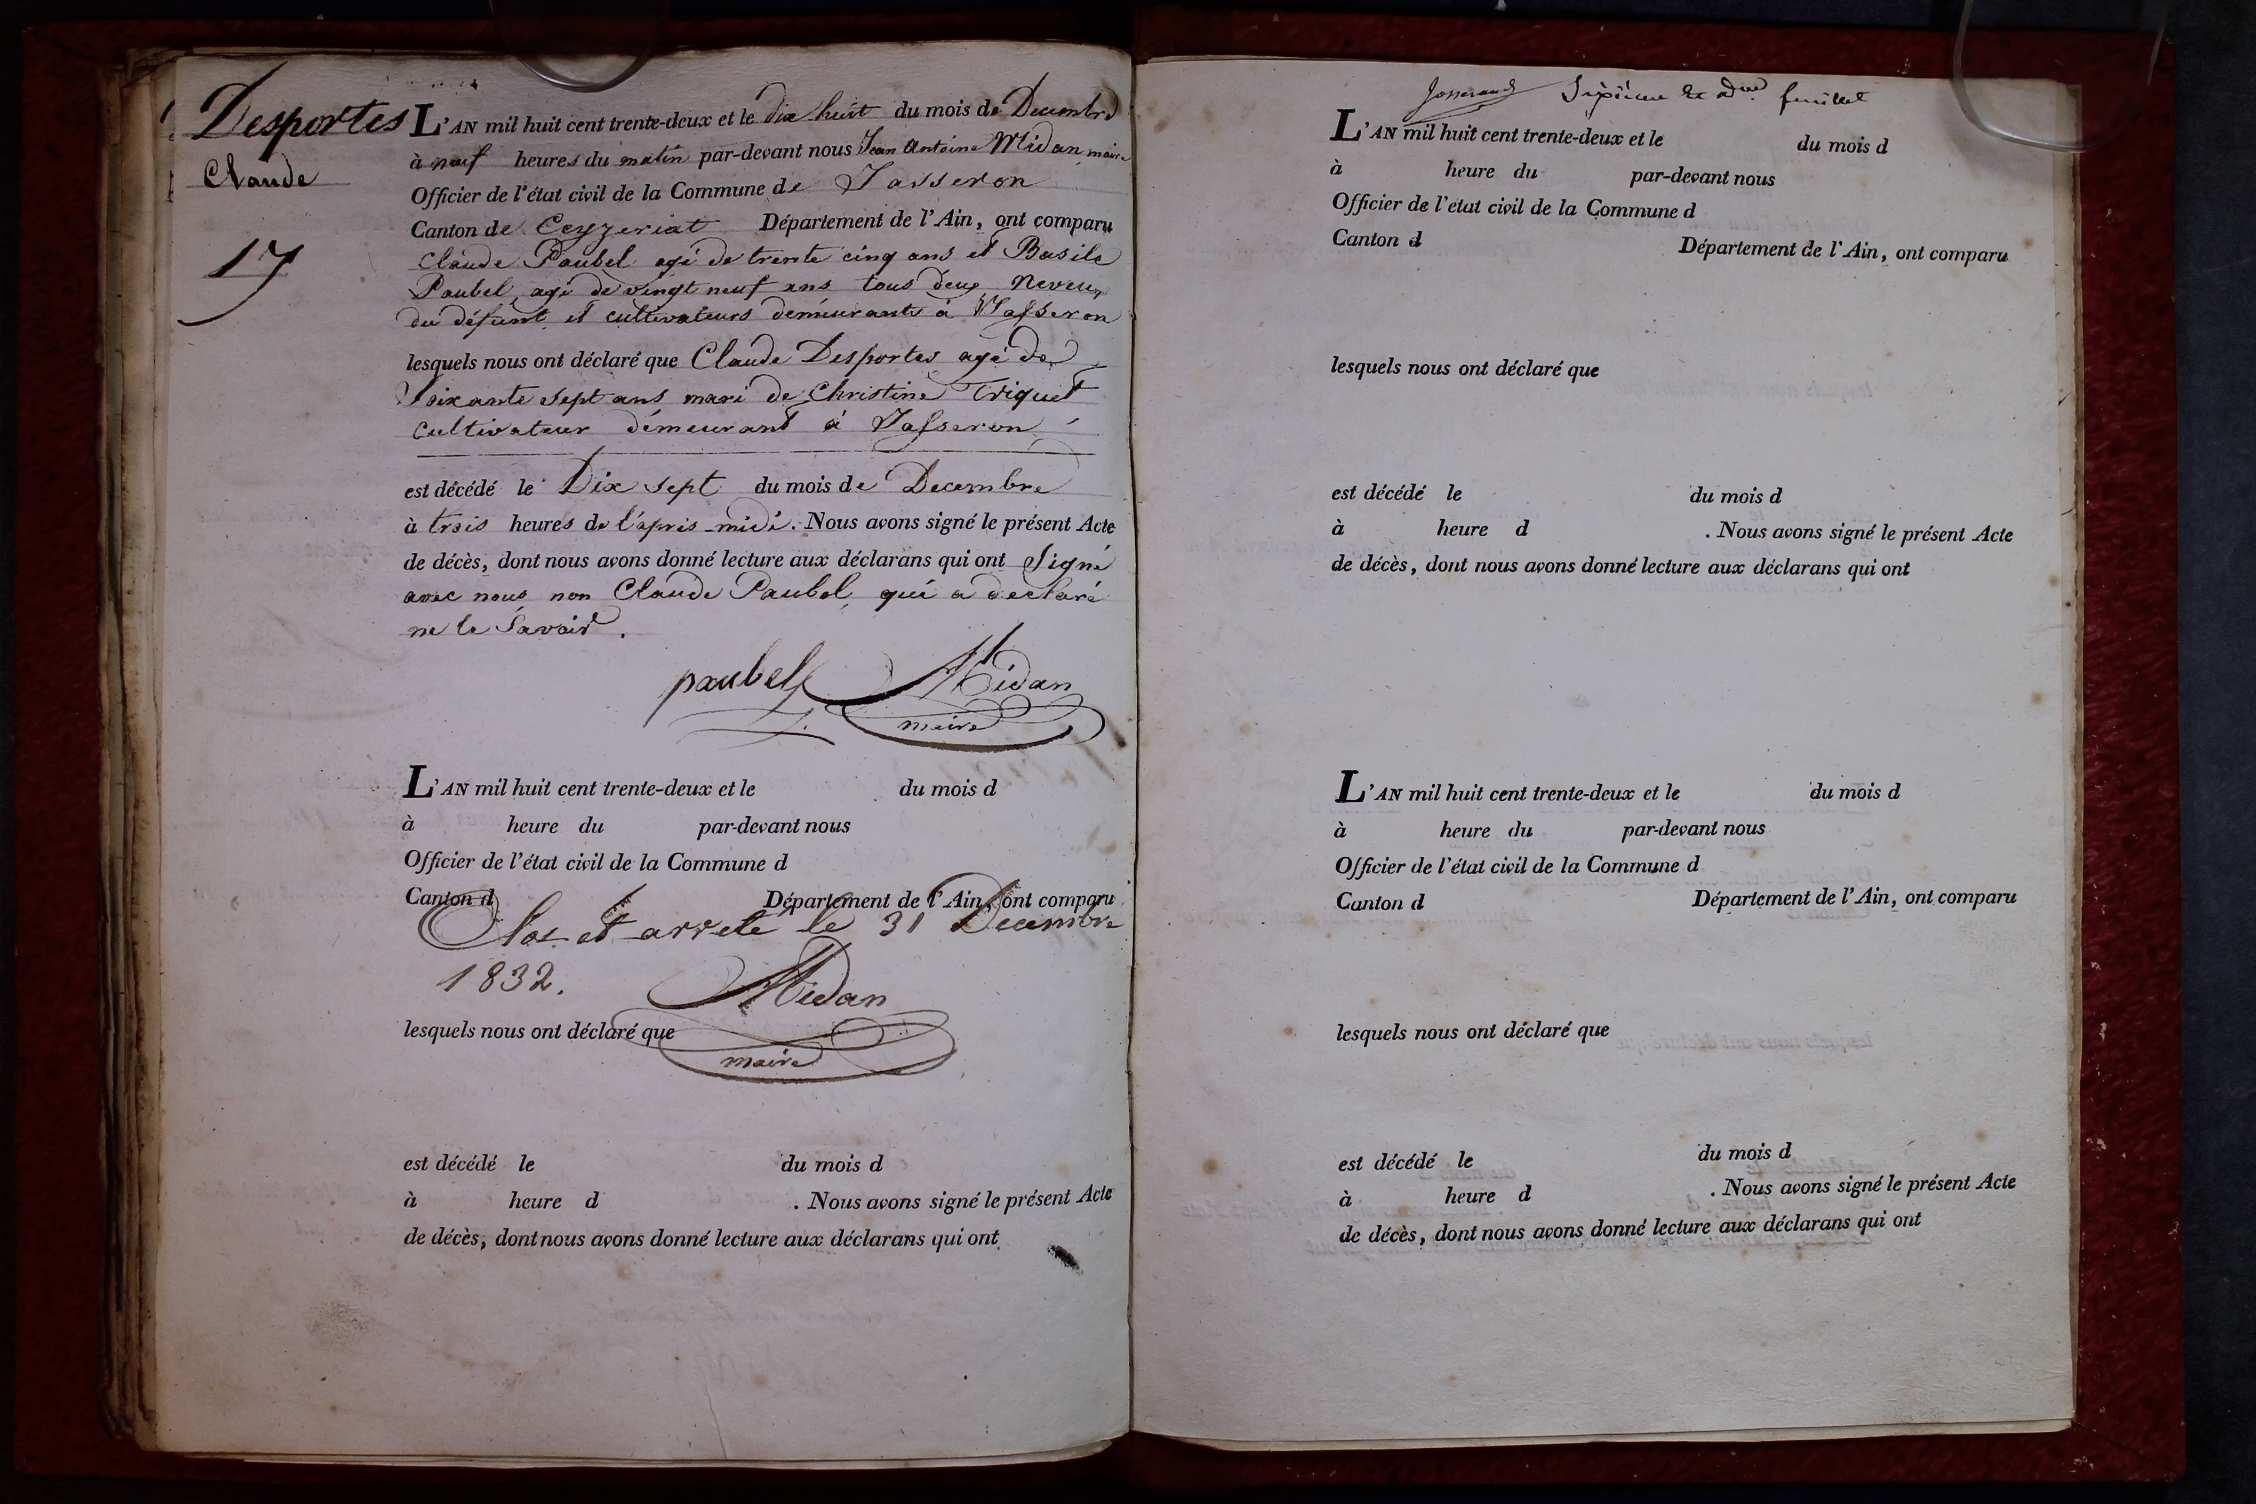 Desportes
Claude
17
L'AN mil huit cent trente-deux et le dix huit du mois de Decembre
à neuf heures du matin par-devant nous Jean Antoine Midan maire
Officier de l'état civil de la Commune de Jasseron
Canton de Ceyzeriat Département de l'Ain, ont comparu
Claude Paubel agé de trente cinq ans et Basile
Paubel, agé de vingt neuf ans tous deux Neveux
du défunt et cultivateurs demeurants à Jasseron
lesquels nous ont déclaré que Claude Desportes agé de
Soixante sept ans mari de Christine Triquet
cultivateur démeurant à Jasseron
est décédé le Dix sept du mois de Decembre
à trois heures de l'apris midi. Nous avons signé le présent Acte
de décès, dont nous avons donné lecture aux déclarans qui ont Signé
avec nous non Claude Paubel, qui a declaré
ne le Savoir.
paubel Midan
maire
L'AN mil huit cent trente-deux et le du mois d
à heure du par-devant nous
Officier de l'état civil de la Commune d
Canton d Département de l'Ain, ont comparu
Clos et arrete le 31 Decembre
1832.
Midan
lesquels nous ont déclaré que
maire
est décédé le du mois d
à heure d . Nous avons signé le présent Acte
de décès, dont nous avons donné lecture aux déclarans qui ont
Josserand feuillet
L'AN mil huit cent trente-deux et le du mois d
à heure du par-devant nous
Officier de l'etat civil de la Commune d
Canton d Département de l'Ain, ont comparu
lesquels nous ont déclaré que
est décédé le du mois d
à heure d . Nous avons signé le présent Acte
de décès, dont nous avons donné lecture aux déclarans qui ont
L'AN mil huit cent trente-deux et le du mois d
à heure du par-devant nous
Officier de l'état civil de la Commune d
Canton d Département de l'Ain, ont comparu
lesquels nous ont déclaré que
est décédé le du mois d
à heure d . Nous avons signé le présent Acte
de décès, dont nous avons donné lecture aux déclarans qui ont